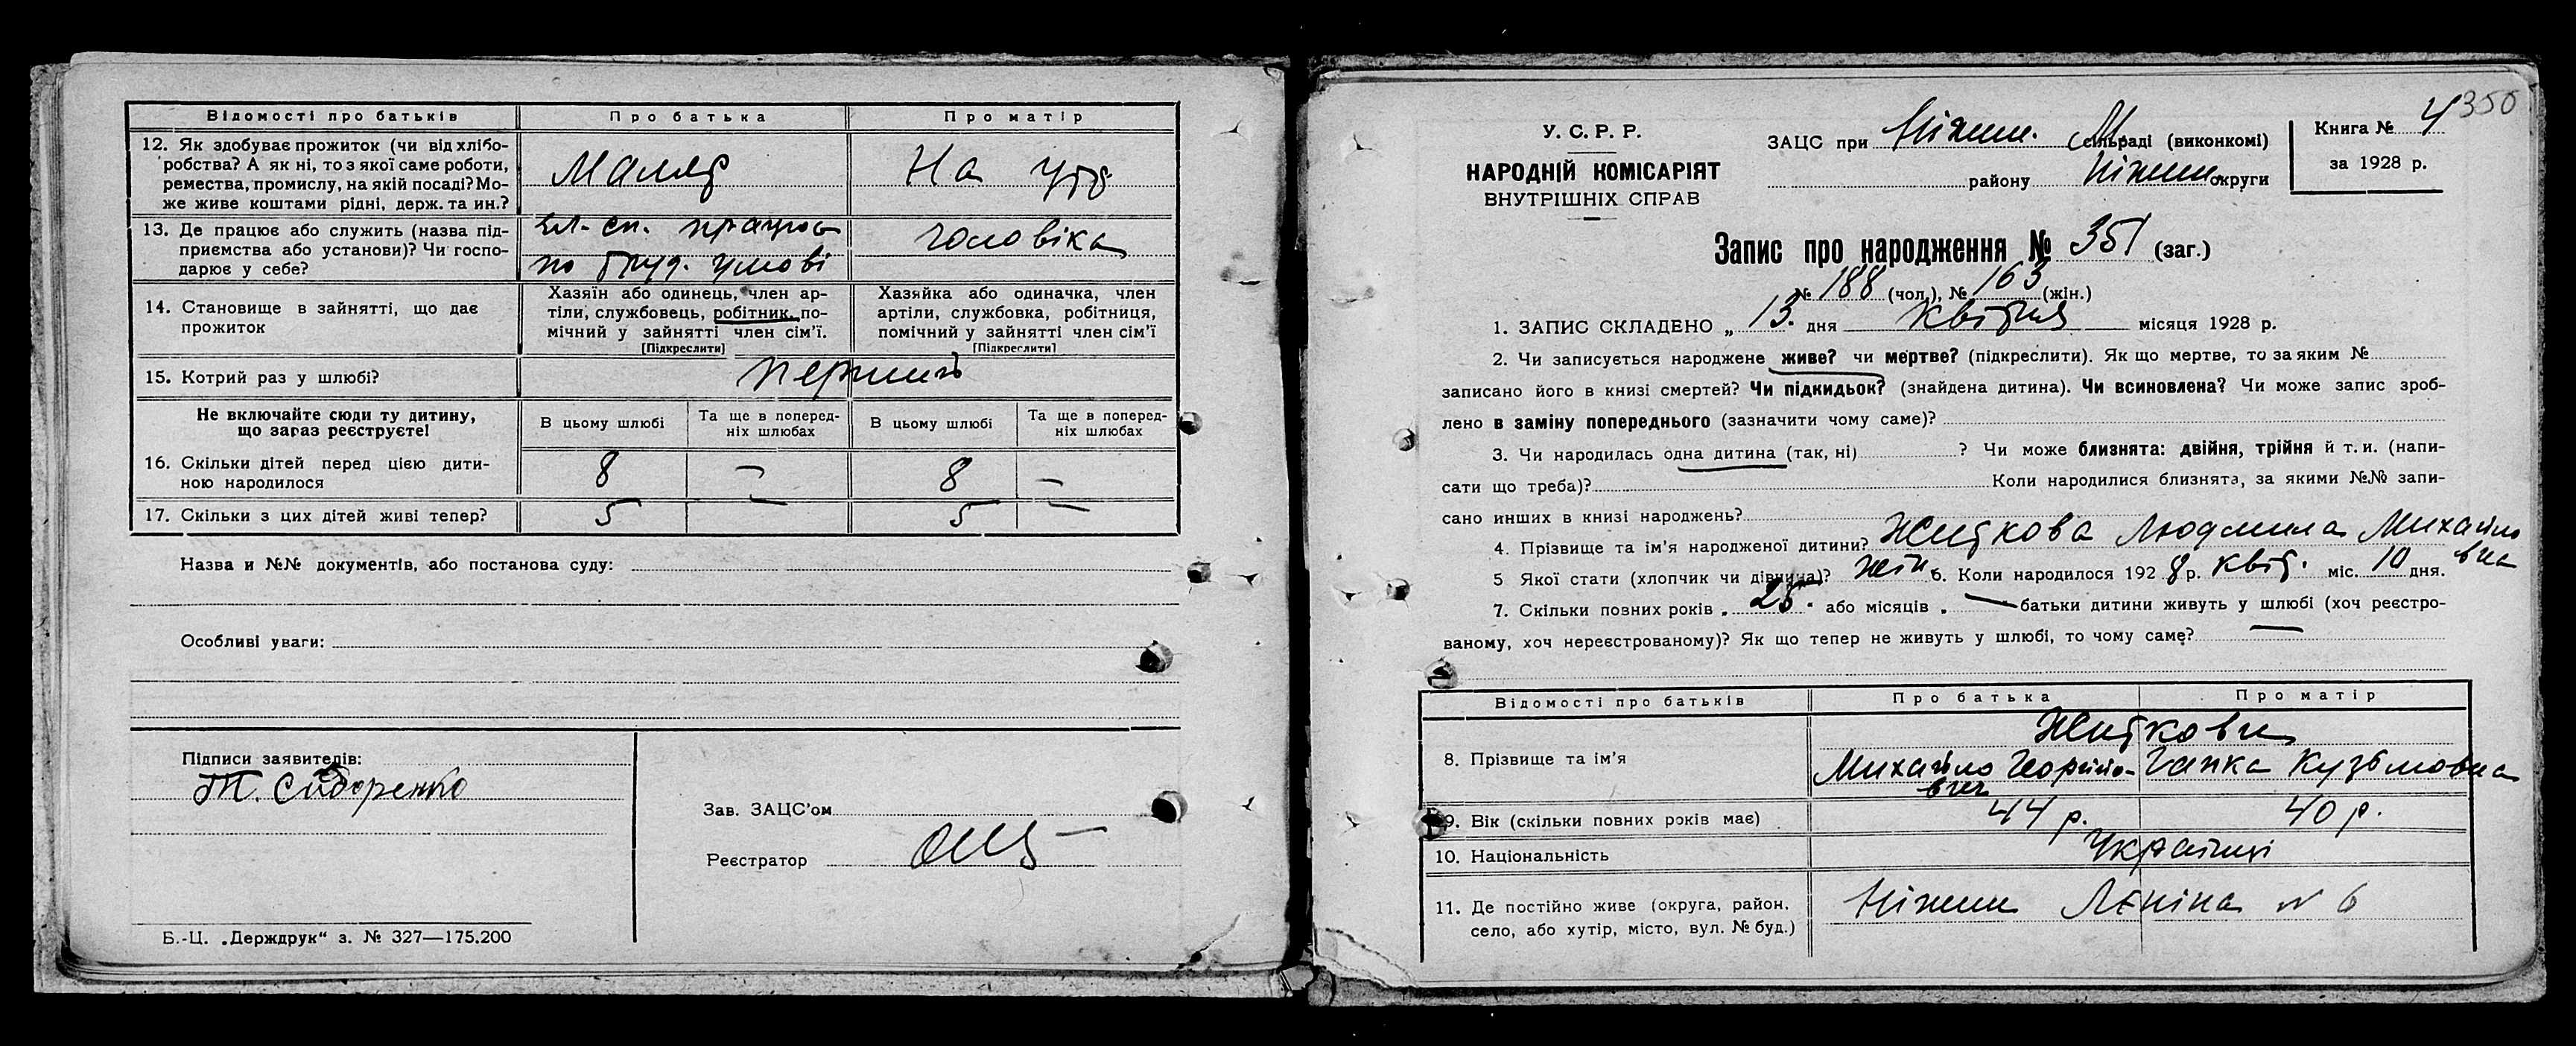 Відомості про батьків Про батька Про матір
12. Як здобуває прожиток (чи від хлібо-
робства? А як ні, то з якої саме роботи,
ремества, промислу, на якій посаді? Мо-
же живе коштами рідні, держ. та ин.?
Маляр На утр
13. Де працює або служить (назва під-
приємства або установи)? Чи госпо-
дарює у себе?
чл. сп. працює чоловіка
по труд. умові
14. Становище в зайнятті, що дає
прожиток
Хазяїн або одинець, член ар-
тілі, службовець, робітник, по-
мічний у зайнятті член сім'ї.
[Підкреслити]
Хазяйка або одиначка, член
артілі, службовка, робітниця,
помічний у зайнятті член сім'ї
[Підкреслити]
15. Котрий раз у шлюбі?
Не включайте сюди ту дитину,
що зараз реєструєте!
В цьому шлюбі
Та ще в поперед-
ніх шлюбах
В цьому шлюбі
Та ще в поперед-
ніх шлюбах
16. Скільки дітей перед цією дити-
ною народилося
8 — 8 —
17. Скільки з цих дітей живі тепер? 5 — 5 —
Назва и №№ документів, або постанова суду:
Особливі уваги:
Підписи заявителів:
Т. Сидоренко
Зав. ЗАЦС'ом
Реєстратор
Б.-Ц. „Держдрук“ з. № 327—175.200
350
У. С. Р. Р.
НАРОДНІЙ КОМІСАРІЯТ
ВНУТРІШНІХ СПРАВ
ЗАЦС при Ніжин. М сільраді (виконкомі)
району Ніжин. округи
Книга № 4
за 1928 р.
Запис про народження № 351 (заг.)
№ 188 (чол.), № 163 (жін.)
1. ЗАПИС СКЛАДЕНО „ 13. дня квітня місяця 1928 р.
2. Чи записується народжене живе? чи мертве? (підкреслити). Як що мертве, то за яким №
записано його в книзі смертей? Чи підкидьок? (знайдена дитина). Чи всиновлена? Чи може запис зроб-
лено в заміну попереднього (зазначити чому саме)?
3. Чи народилась одна дитина (так, ні) ? Чи може близнята: двійня, трійня й т. и. (напи-
сати що треба)? Коли народилися близнята, за якими №№ запи-
сано инших в книзі народжень?
4. Прізвище та ім'я народженої дитини? Житкова Людмила Михайло
вна
5 Якої стати (хлопчик чи дівчина)? жін. 6. Коли народилося 192 8 р. квіт. міс. 10 дня.
7. Скільки повних років „ 25 „ або місяців „ — батьки дитини живуть у шлюбі (хоч реєстро-
ваному, хоч нереєстрованому)? Як що тепер не живуть у шлюбі, то чому саме? —
Відомості про батьків Про батька Про матір
Житкови
8. Прізвище та ім'я Михайло Георгійо- Ганка Кузьмовна
вич
9. Вік (скільки повних років має) 44 р. 40 р.
10. Національність Українці
11. Де постійно живе (округа, район,
село, або хутір, місто, вул. № буд.)
Ніжин Леніна № 6